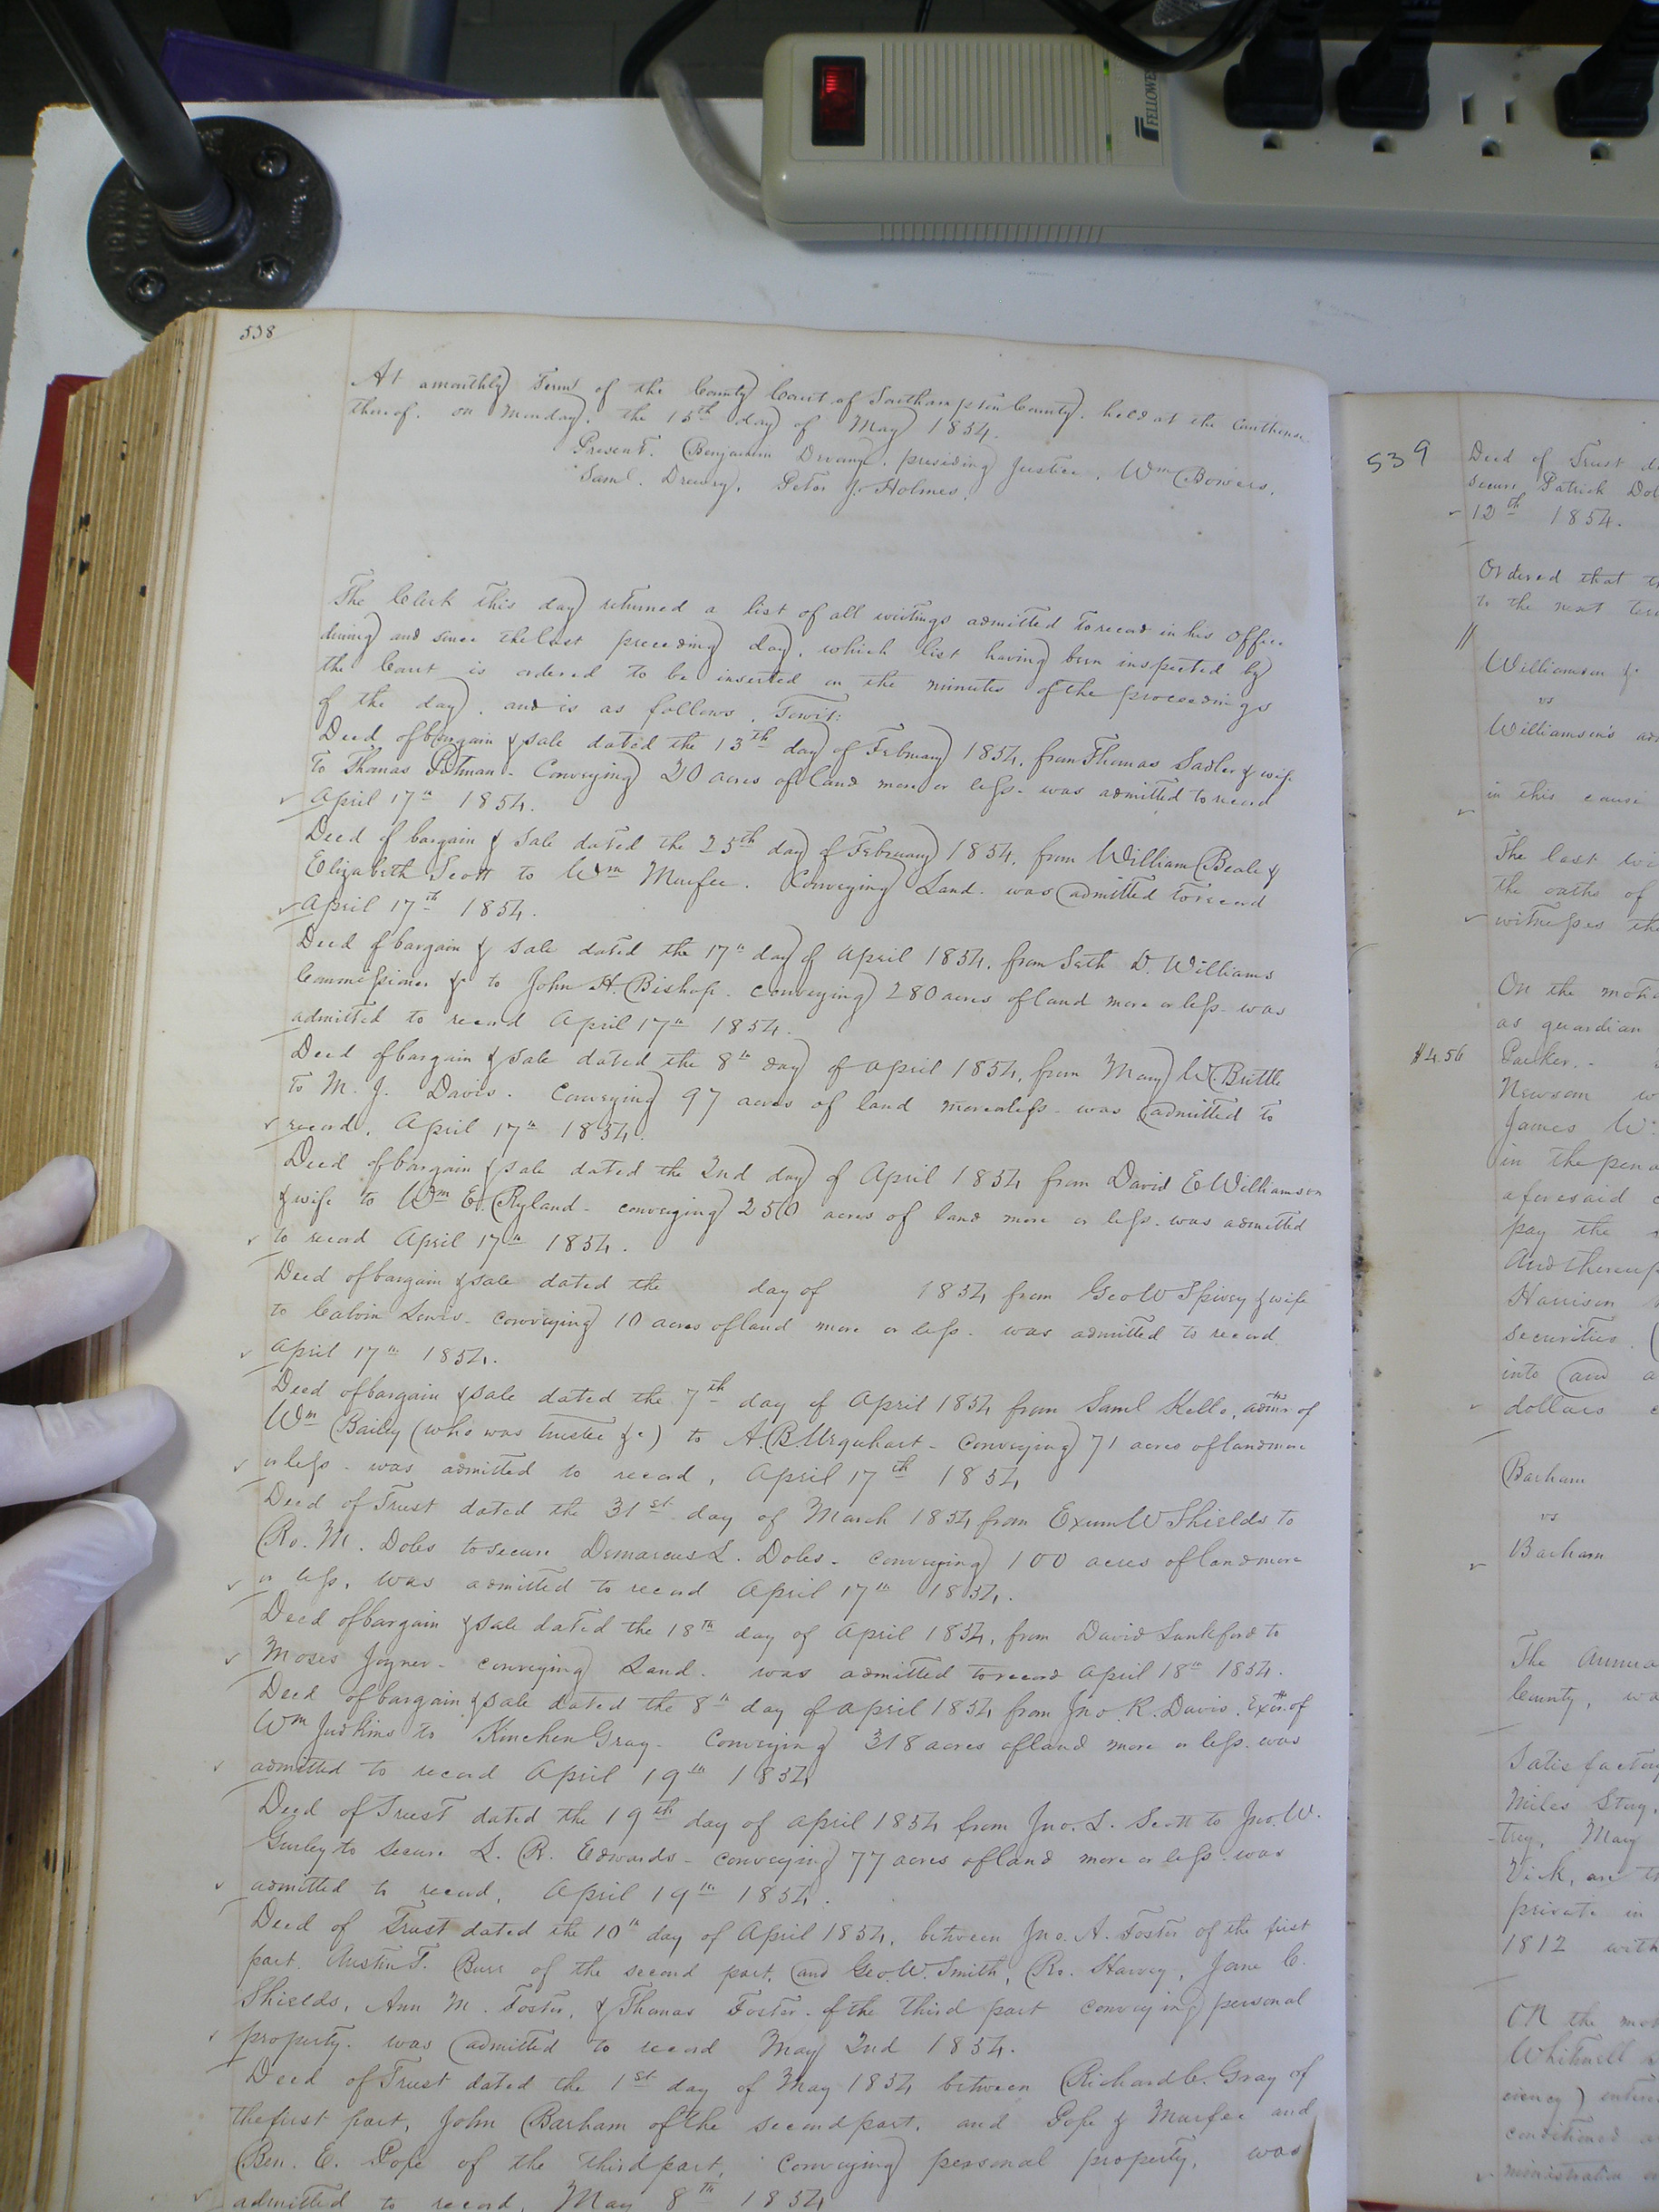 FELLOWES
538
At a monthly Term of the County Court of Southampton County, held at the Courthouse
thereof, on Monday, the 15th day of May 1854.
Present. Benjamin Devany, presiding Justice, Wm Bowers,
Saml. Drewry, Peter J. Holmes,
The Clerk this day returned a list of all writings admitted to record in his office
during and since the last preceding day, which list having been inspected by
the Court is ordered to be inserted in the minutes of the proceedings
of the day, and is as follows, Towit:
Deed of bargain & sale dated the 13th day of February 1854, from Thomas Sadler & wife
to Thomas Pitman - Conveying 20 acres of land more or less - was admitted to record
April 17th 1854.
Deed of bargain & sale dated the 25th day of February 1854, from William Beale &
Elizabeth Scott to Wm Murfee. Conveying Land. was admitted to record
April 17th 1854.
Deed of bargain & sale dated the 17th day of April 1854, from Seth D. Williams
Commissioner &c to John H. Bishop - conveying 280 acres of land more or less - was
admitted to record April 17th 1854.
Deed of bargain & sale dated the 8th day of April 1854, from Mary W. Brittle
to M. J. Davis. Conveying 97 acres of land more or less - was admitted to
record, April 17th 1854.
Deed of bargain & sale dated the 2nd day of April 1854 from David E Williamson
& wife to Wm E. Ryland - conveying 250 acres of land more or less - was admitted
to record April 17th 1854.
Deed of bargain & sale dated the day of 1854 from Geo W Spivey & wife
to Calvin Lewis - conveying 10 acres of land more or less - was admitted to record
April 17th 1854.
Deed of bargain & sale dated the 7th day of April 1854 from Saml Kello, admr of
Wm Bailey (who was trustee &c) to A. B. Urquhart - conveying 71 acres of land more
or less - was admitted to record, April 17th 1854
Deed of Trust dated the 31st day of March 1854 from Exum W Shields to
Ro. M. Doles to secure Demarcus L. Doles - conveying 100 acres of land more
or less, was admitted to record April 17th 1854.
Deed of bargain & sale dated the 18th day of April 1854, from David Lankford to
Moses Joyner - conveying Land. was admitted to record April 18th 1854.
Deed of bargain & sale dated the 8th day of April 1854 from Jno. R. Davis. Exor. of
Wm Judkins to Kinchen Gray - Conveying 318 acres of land more or less - was
admitted to record April 19th 1854
Deed of Trust dated the 19th day of April 1854 from Jno. L. Scott to Jno. W.
Gurley to secure L. R. Edwards - conveying 77 acres of land more or less - was
admitted to record, April 19th 1854.
Deed of Trust dated the 10th day of April 1854, between Jno. A. Foster of the first
part, Austin T. Burr of the second part, and Geo. W. Smith, Ro. Harvey, Jane C.
Shields, Ann M. Foster, & Thomas Foster of the third part conveying personal
property. was admitted to record May 2nd 1854.
Deed of Trust dated the 1st day of May 1854 between Richard C. Gray of
the first part, John Barham of the second part, and Pope & Murfee and
Ben. E. Pope of the third part, Conveying personal property, was
admitted to record, May 8th 1854
539
Deed of Trust
secure Patrick
12th 1854.
Ordered that
to the next
Williamson &
vs
Williamson's
in this cause
The last
the oaths of
witnesses
On the
as guardian
$456 Parker. -
Newsom
James W.
in the
aforesaid
pay the
And
Harrison
securities
into and
dollars
Barham
vs
Barham
The
County,
Miles
May
Vick,
private in
1812 with
On the
Whitnell
conditioned